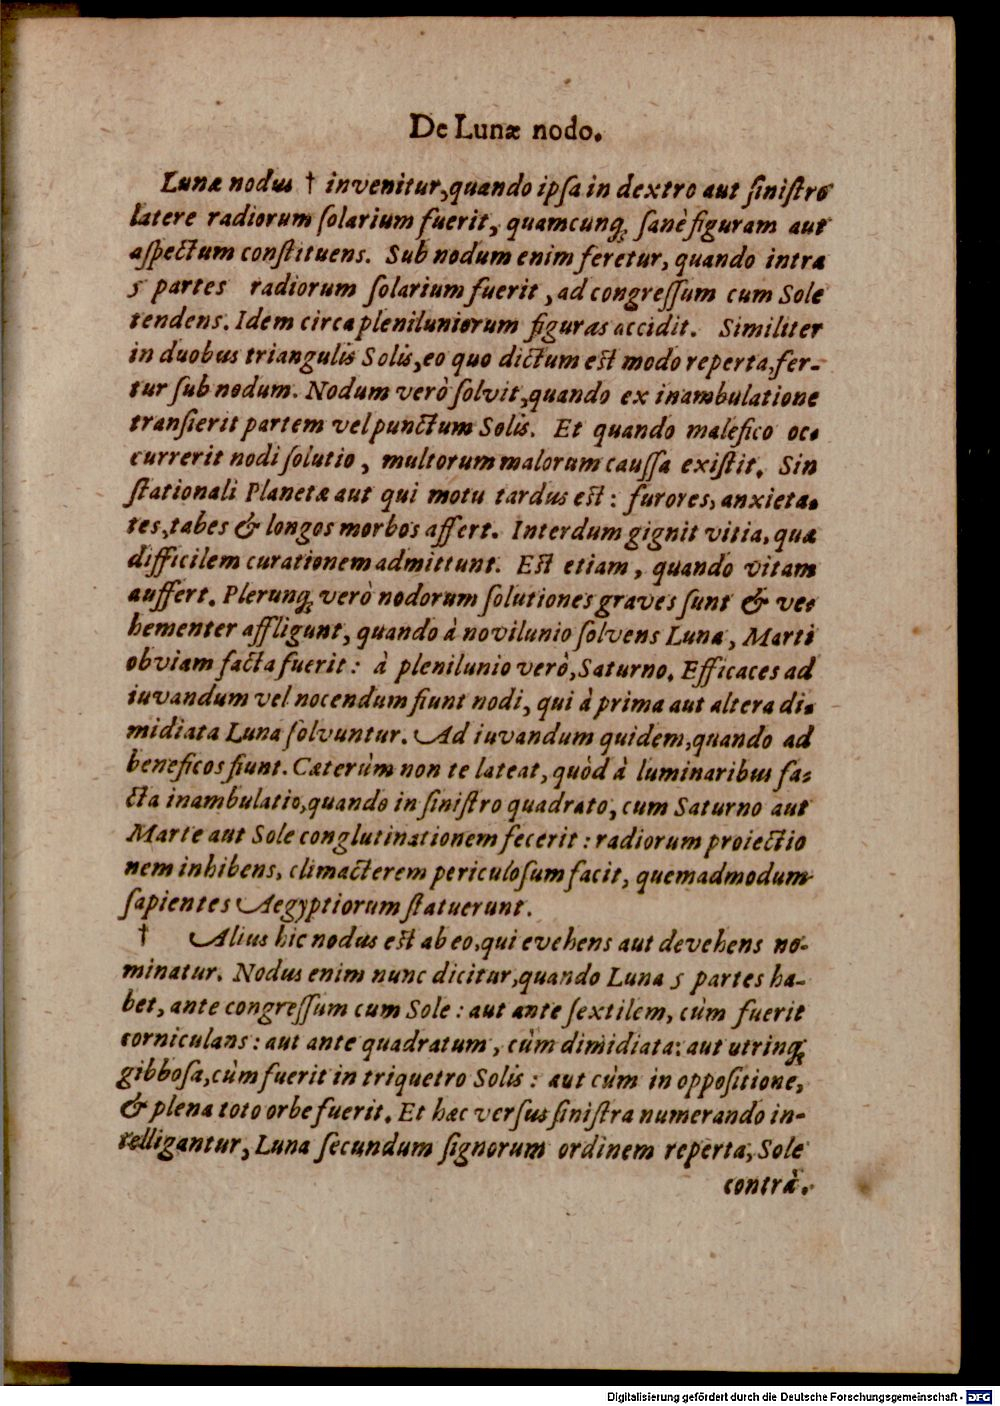 De Lunæ nodo.
Lunæ nodus † invenitur, quando ipſa in dextro aut ſiniſtro
latere radiorum ſolarium fuerit, quamcunq; ſanè figuram aut
aſpectum conſtituens. Sub nodum enim feretur, quando intra
5 partes radiorum ſolarium fuerit, ad congreſſum cum Sole
tendens. Idem circa pleniluniorum figuras accidit. Similiter
in duobus triangulis Solis, eo quo dictum est modo reperta, fer-
tur ſub nodum. Nodum verò ſolvit, quando ex inambulatione
tranſierit partem vel punctum Solis. Et quando malefico oc-
currerit nodi ſolutio, multorum malorum cauſſa exiſtit. Sin
ſtationali Planetæ aut qui motu tardus est: furores, anxieta-
tes, tabes & longos morbos affert. Interdum gignit vitia, quæ
difficilem curationem admittunt. Est etiam, quando vitam
auffert. Plerunq; verò nodorum ſolutiones graves ſunt & ve-
hementer affligunt, quando à novilunio ſolvens Luna, Marti
obviam facta fuerit: à plenilunio verò, Saturno. Efficaces ad
iuvandum vel nocendum fiunt nodi, qui à prima aut altera di-
midiata Luna ſolvuntur. Ad iuvandum quidem, quando ad
beneficos fiunt. Cæterùm non te lateat, quòd à luminaribus fa-
cta inambulatio, quando in ſiniſtro quadrato, cum Saturno aut
Marte aut Sole conglutinationem fecerit: radiorum proiectio
nem inhibens, climacterem periculoſum facit, quemadmodum
ſapientes Aegyptiorum ſtatuerunt.
† Alius hic nodus est ab eo, qui evehens aut devehens no-
minatur. Nodus enim nunc dicitur, quando Luna 5 partes ha-
bet, ante congreſſum cum Sole: aut ante ſextilem, cùm fuerit
corniculans: aut ante quadratum, cùm dimidiata: aut utrinq;
gibboſa, cùm fuerit in triquetro Solis: aut cùm in oppoſitione,
& plena toto orbe fuerit. Et hæc verſus ſiniſtra numerando in-
telligantur, Luna ſecundum ſignorum ordinem reperta, Sole
contrà.
Digitalisierung gefördert durch die Deutsche Forschungsgemeinschaft - DFG